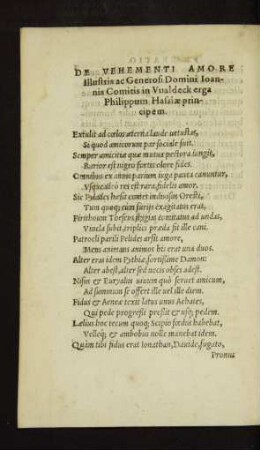 DE VEHEMENTI AMORE
illustris ac Generosi Domini Ioan-
nis Comitis in Vualdeck erga
Philippum Hassiæ prin-
cipem.
Extulit ad cœlos æterna laude uetustas,
Si quod amicorum par sociale fuit.
Semper amicitia quæ mutua pectora iungit,
Rarior est nigro sorte colore fides.
Omnibus ex annis parium iuga pauca canuntur,
Vsque adeo rei est rara, fidelis amor.
Sic Pylades hæsit comes indiuisus Oresti,
Tum quoque cum furijs exagitatus erat,
Pirithoum Theseus stygias comitatus ad undas,
Vincla subit, triplici præda sit ille cani.
Patrocli parili Pelides arsit amore,
Mens animans animos his erat una duos.
Alter erat idem Pythiæ, fortissime Damon:
Alter abest, alter sed necis obses adest.
Nisus & Euryalus uiuum quò seruet amicum,
Ad summum se offert ille uel ille diem.
Fidus & Aeneæ texit latus unus Achates,
Qui pede progressi pressit & usque pedem.
Lælius hoc tecum quoque Scipio fœdus habebat,
Velleque & ambobus nolle manebat idem.
Quàm tibi fidus erat Ionathan, Dauide fugato,
Promus